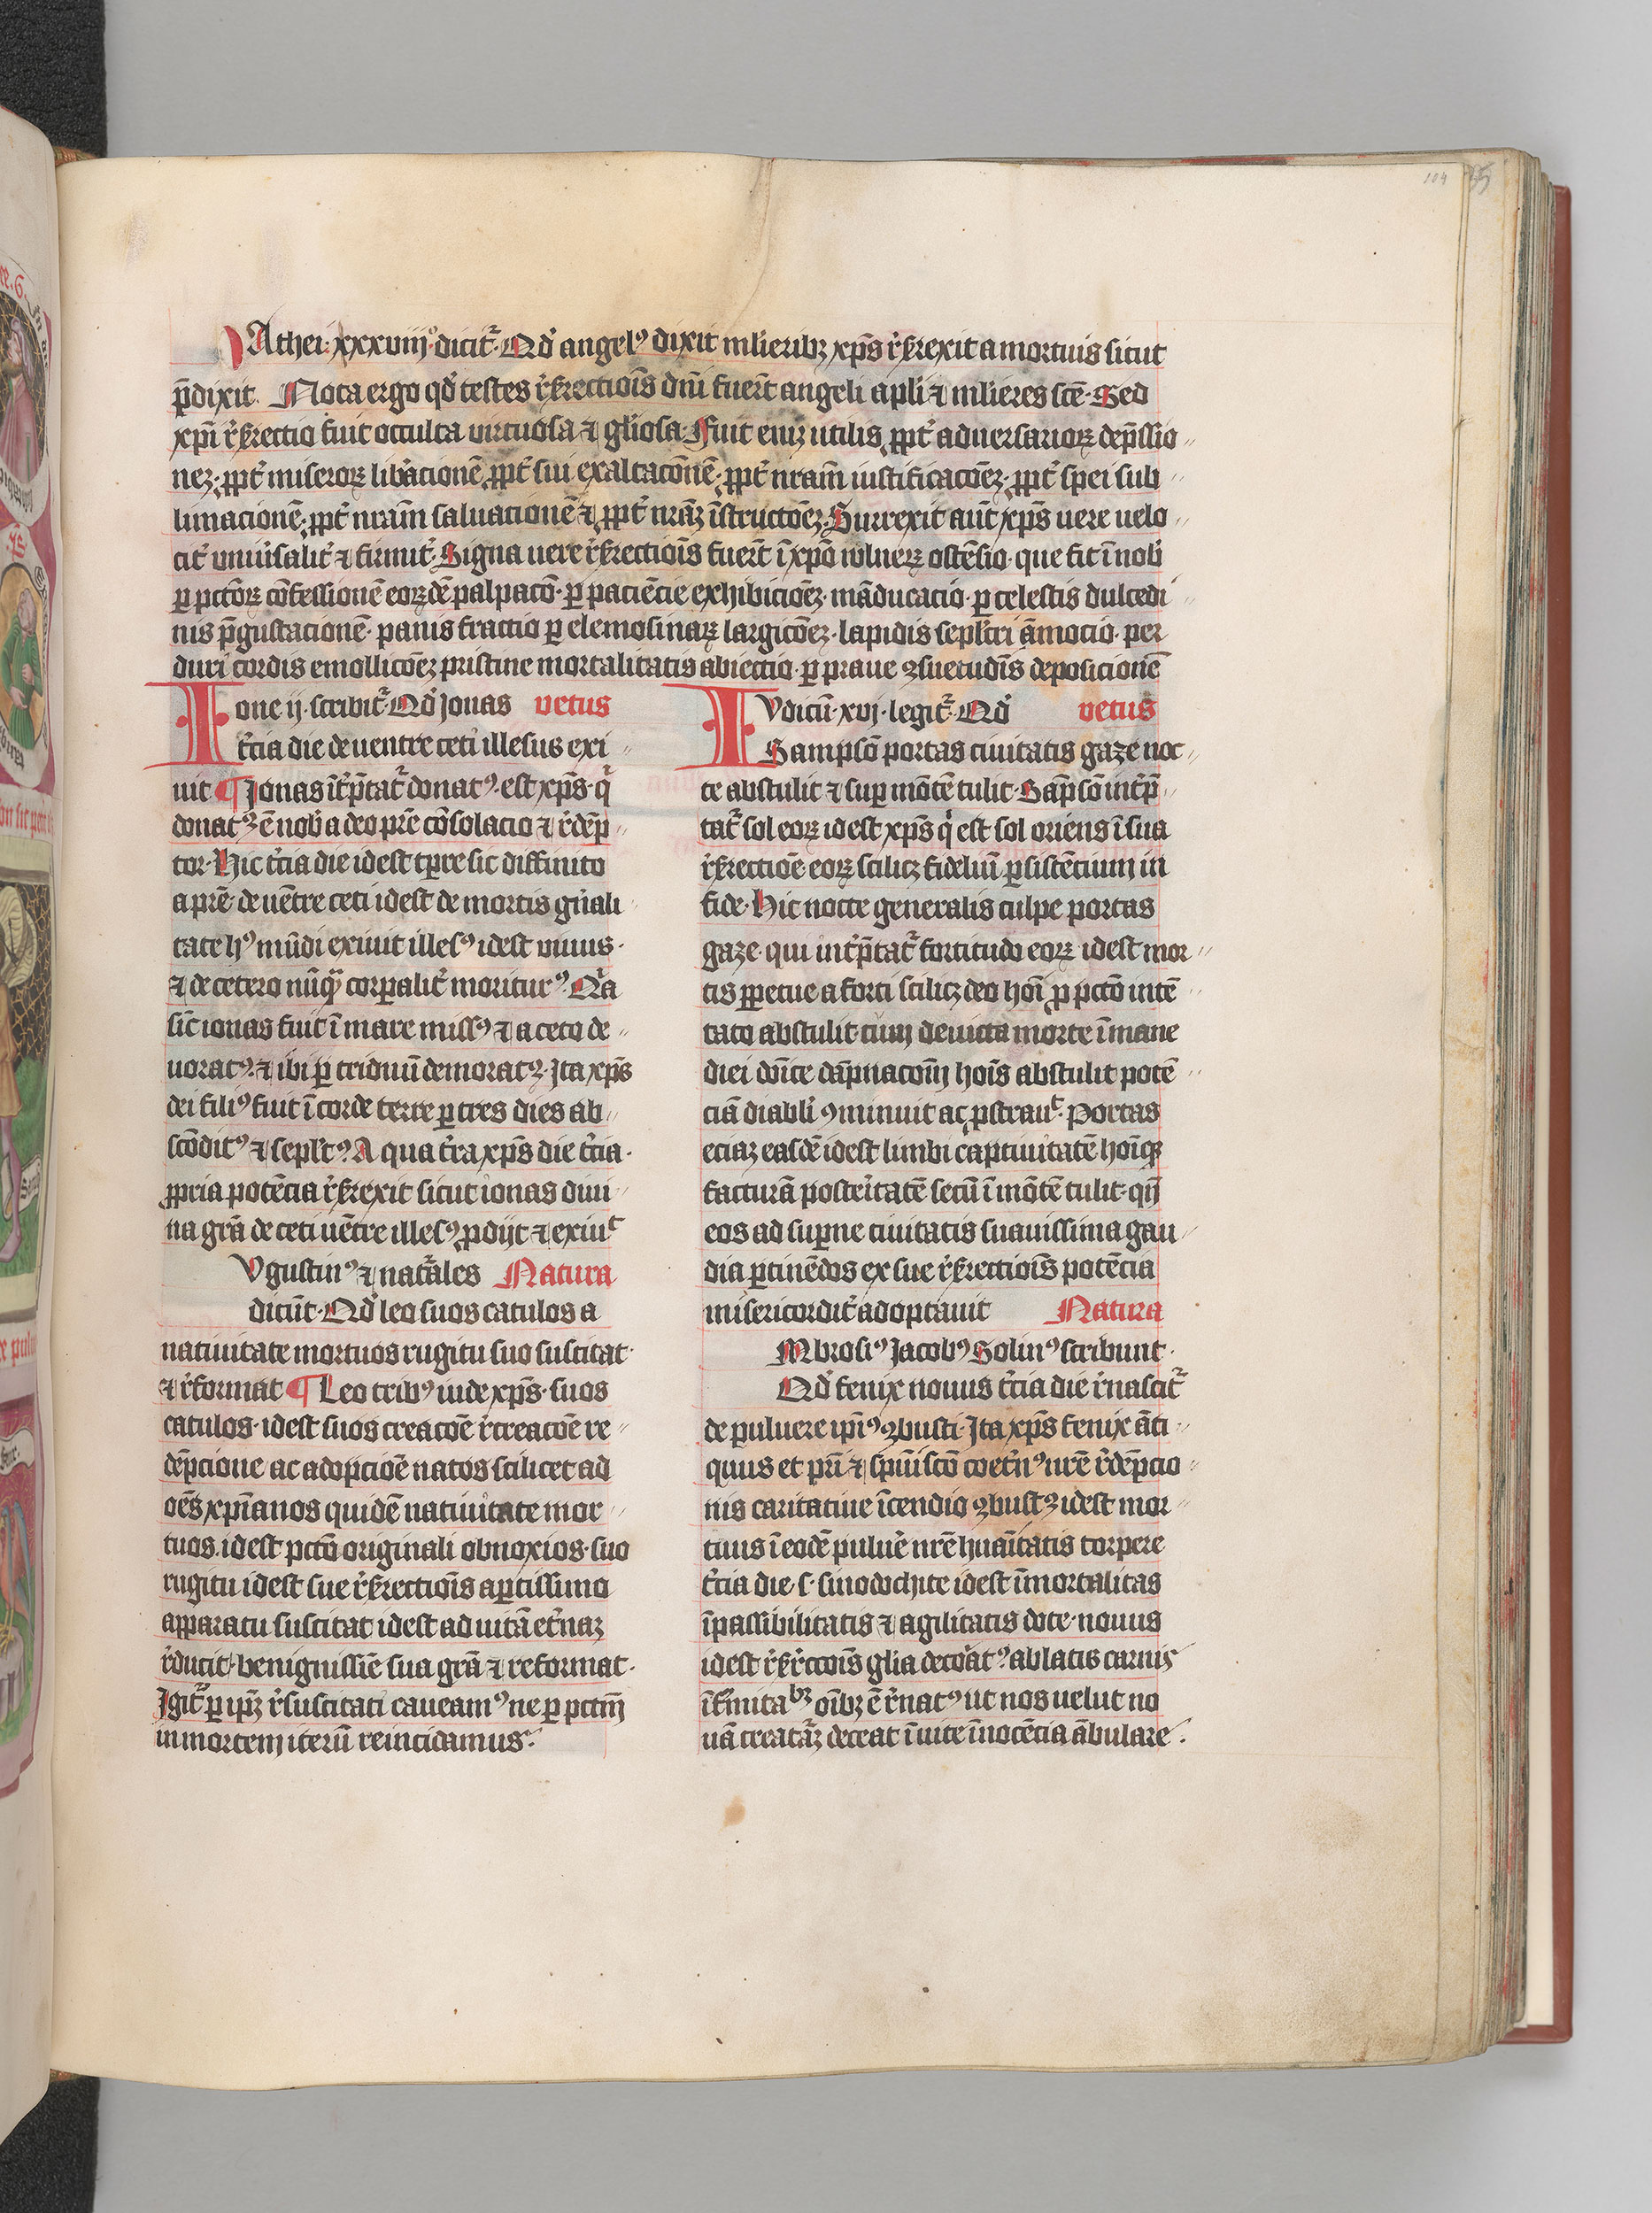 Athei xxxviij° dicit̉ Qd̉ angelꝰ dixit mlieribꝫ xp̄s r̉s̉rexit a mortuis sicut
p̄dixit. Nota ergo qd̉ testes r̉s̉rectiōis dn̄i fuer̄t angeli apl̉i ⁊ mlieres sc̄e. Sed
xp̄i r̉s̉rectio fuit occulta virtuosa ⁊ gl̉iosa. Fuit eniꝫ utilis ꝓpt̉ aduersarioꝝ dep̄ssio
neꝫ. ꝓpt̉ miseroꝝ lib̉acionē ꝓpt̉ sui exaltacōnē. ꝓpt̉ nrām iustificacōeꝫ. ꝓpt̉ spei sub
limacionē. ꝓpt̉ nrām saluacionē ⁊ ꝓpt̉ nrāꝫ īstructōeꝫ. Surrexit aūt xp̄s uere uelo
cit̉ vniủsalit̉ ⁊ firmit̉. Signa uere r̉s̉rectiōis fuer̄t ī xp̄o wlnerꝝ ostēsio. que fit ī nob̉
ꝑ pctōꝝ cōfessionē eorꝝdē palpacō. ꝑ paciēcie exhibiciōeꝫ. māducacio. ꝑ celestis dulcedi
nis p̄gustacionē. panis fractio ꝑ elemosinaꝝ largicōeꝫ. lapidis sepl̉cri āmocio. per
duri cordis emollicōeꝫ pristine mortalitatis abiectio. ꝑ praue ꝯsuetudīs deposicionē
Ione ij. scribit̉ Qd̉ Jonas vetus
t̉cia die de uentre ceti illesus exi
uit ¶ Jonas īt̉p̄tat̉ donatꝰ. est xp̄s. q̉
donatꝰ ē nob̉ a deo pr̄e cōsolacio ⁊ r̉dēp
tor. Hic t̉cia die idest tp̄re sic diffinito
a pr̄e. de uētre ceti idest de mortis gn̉ali
tate hꝰ mūdi exiuit illesꝰ idest viuus.
⁊ de cetero nūq̄ꝫ corꝑalit̉ moriturꝰ. Qa
sic̄ ionas fuit ī mare missꝰ ⁊ a ceto de
uoratꝰ. ⁊ ibi ꝑ triduū demoratꝰ. Ita xp̄s
dei filiꝰ fuit ī corde terre ꝑ tres dies ab
scōditꝰ ⁊ sepl̉tꝰ. A qua t̉ra xp̄s die t̉cia.
ꝓpria potēcia r̉s̉rexit sicut ionas diui
na grā de ceti uētre illesꝰ ꝓdijt ⁊ exiuᵗ
Vgustinꝰ ⁊ nat̉ales Natura
dicūt. Qd̉ leo suos catulos a
natiuitate mortuos rugitu suo suscitat.
⁊ r̉format ¶ Leo tribꝰ iude xp̄s. suos
catulos. idest suos creacōe r̉creacōe re
dēpcione ac adopciōe natos scilicet ad
oēs xp̄ianos quidē natiuitate mor
tuos. idest pctō originali obnoxios. suo
rugitu idest sue r̉s̉rectiōis aꝑtissimo
apparatu suscitat idest ad uitā et̉naꝫ
r̉ducit. benignissīe sua grā ⁊ reformat.
Igit̉ ꝑ ip̄ꝫ r̉suscitati caueamꝰ ne ꝑ pctm̄
in mortem iterū reincidamus.
Vdicū. xvj. legit̉. Qd̉ vetus
Sampsō portas ciuitatis gaze noc
te abstulit ⁊ suꝑ mōtē tulit. Sāpsō int̉p̄
tat̉ sol eorꝝ idest xp̄s q̉ est sol oriens ī sua
r̉s̉rectiōe. eorꝝ scilicꝫ fideliū ꝑsistēcium in
fide. Hic nocte generalis culpe portas
gaze. qui int̉p̄tat̉ fortitudo eorꝝ idest mor
tis ꝑpetue a forti scilicꝫ deo hoī ꝓ pctō intē
tato abstulit cum deuicta morte ī mane
diei dn̄ice dāpnacom̄ hoīs abstulit potē
ciā diabl̉i ꝯminuit ac ꝓstrauᵗ. Portas
eciaꝫ easdē idest limbi captiuitatē hoīqꝫ
facturā posteritatē secū ī mōtē tulit. qn̄
eos ad suꝑne ciuitatis suauissima gau
dia ꝑtinēdos ex sue r̉s̉rectiōis potēcia
misericordit̉ adoptauit Natura
Mbrosiꝰ Jacobꝰ Solinꝰ scribunt.
Qd̉ fenix nouus t̉cia die r̉nascit̉
de puluere ip̄iꝰ ꝯbusti. Ita xp̄s fenix āti
quus et pr̄i ⁊ sp̄ui scō coet̉nꝰ nr̄e r̉dēpcio
nis caritatiue īcendio ꝯbustꝰ idest mor
tuus ī eodē puluē nr̄e huāitatis corpere
t̉cia die. s. sinodochice idest īmortalitas
īpassibilitatis ⁊ agilitatis dote. nouus
idest r̉s̉rccōis gl̉ia decoratꝰ. ablatis carnis
īf̉mitaᵇꝫ oībꝫ ē r̉natꝰ ut nos uelut no
uā creat̉āꝫ deceat ī uite īnocēcia ābulare.